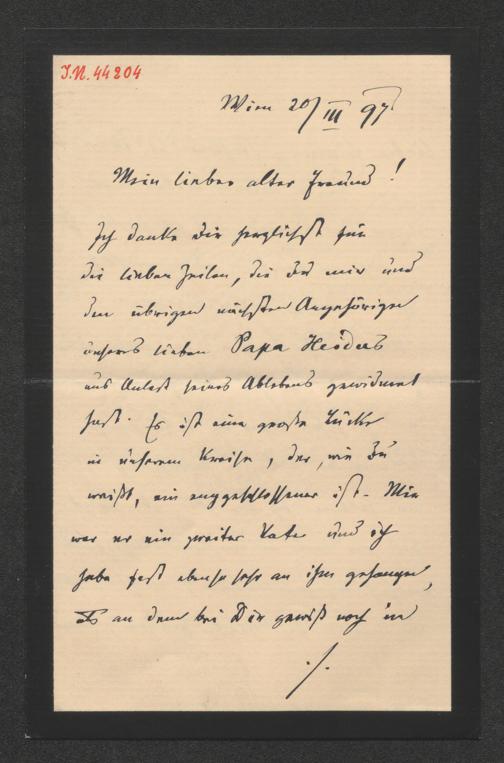 I.N. 44204
Wien 20/III 97
Mein lieber alter Freund!
Ich danke Dir herzlichst für
die lieben Zeilen, die Du mir und
den übrigen nächsten Angehörigen
unseres lieben Papa Heiders
aus Anlaß seines Ablebens gewidmet
hast. Es ist eine große Lücke
in unserem Kreise, der, wie Du
weißt, ein enggeschlossener ist. Mir
war er ein zweiter Vater und ich
habe fast ebenso sehr an ihm gehangen,
als an dem bei Dir gewiß noch in
./.